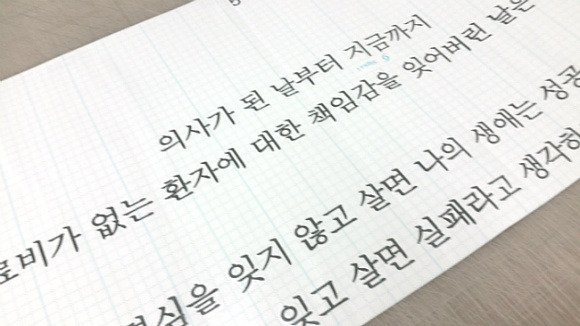 의사가 된 날부터 지금까지
없는 환자에 대한 책임감을 잊어버린 날은
잊지 않고 살면 나의 생애는
잊고 살면 실패라고